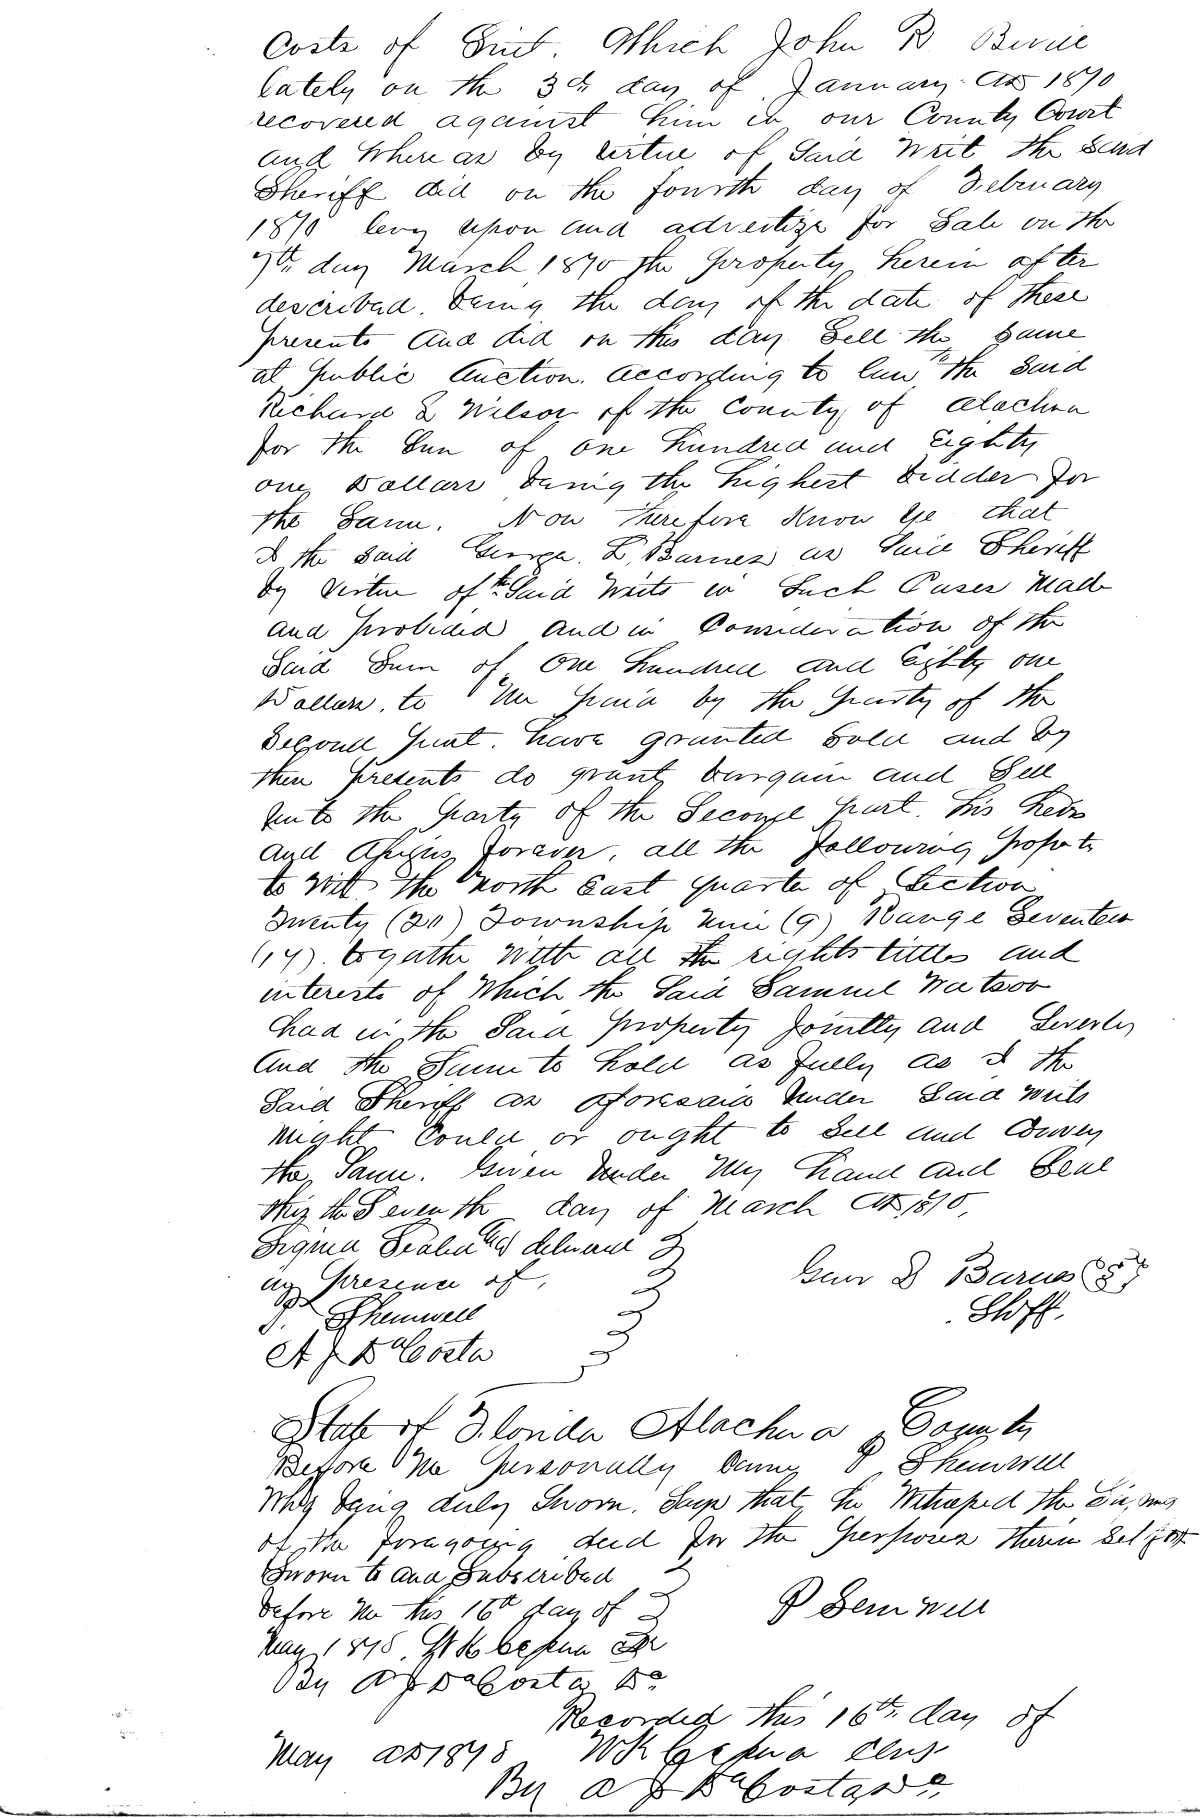 Costs of Suit. Which John R Bevill
lately on the 3d day of January AD 1870
recovered against him in our County Court
and Where as by virtue of Said Writ the Said
Sheriff did on the fourth day of February
1870 levy upon and advertize for Sale on the
7th day March 1870 the property herein after
described. being the day of the date of these
presents and did on this day Sell the Same
at public Auction. according to law to the Said
Richard L Wilson of the County of Alachua
for the Sum of one hundred and Eighty
one Dollars being the highest bidder for
the Same. Now Therefore Know Ye that
I the Said George. L. Barnes as Said Sheriff
by virtue of the Said Writs in Such Cases Made
and provided and in Consideration of the
Said Sum of One hundred and Eighty one
Dollars. to Me paid by the party of the
Second part. have granted Sold and by
these presents do grant bargain and Sell
unto the party of the Second part. his heirs
and Assigns forever. all the following property
to Wit the North East quarter of Section
Twenty (20) Township Nine (9) Range Seventeen
(17). together With all the rights titles and
interests of Which the Said Samuel Watson
had in the Said property Jointly and Severly
And the Same to hold as fully as I the
Said Sheriff as aforesaid Under Said writs
Might Could or ought to Sell and Convey
the Same. Given Under My hand and Seal
this the Seventh day of March AD 1870,
Signed Sealed and delivered
in presence of,
P. Shemwell
A J DaCosta
Geor L Barnes
Shff.
State of Florida Alachua County
Before Me personally Came P Shemwell
Who being duly Sworn. Says that he Witnessed the Signing
of the foregoing deed for the purposes therein Set fort
Sworn to and Subscribed
before Me this 16th day of
May 1878.
By A J DaCosta Dc
P Semwell
Recorded this 16th day of
May AD 1878 Clerk
By A J DaCosta Dc